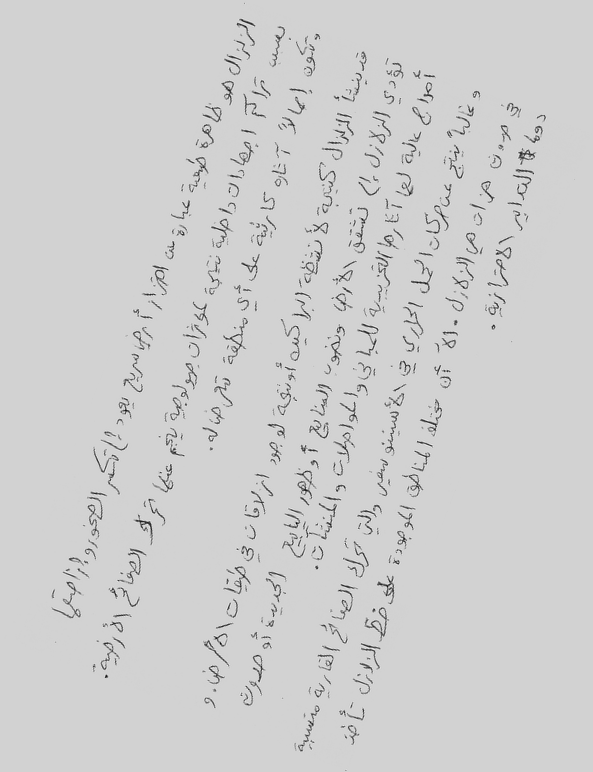 الزلزال هو ظاهرة طبيعية عبارة عن اهتزاز أرضي سريع يعود إلى تكسر الصخور وإزاحتها
بسبب تراكم إجهادات داخلية نتيجة لمؤثرات جيولوجية ينجم عنها تحرك الصفائح الأرضية.
وتكون إجمالا آثاره كارثية على أي منطقة تتعرض له.
قد ينشأ الزلزال كنتيجة لأنشطة البراكين أو نتيجة لوجود انزلاقات في طبقات الأرض. و
تؤدي الزلازل إلى تشقق الأرض ونضوب الينابيع أو ظهور الينابيع الجديدة أو حدوث
أمواج عالية لها آثارها التخريبية للمباني والمواصلات والمنشآت.
وغالبا ينتج عن حركات الحمل الحراري في الأسينوسفير والتي تحرك الصفائح القارية متسببة
في حدوث هزات هي الزلازل. الا أن مختلف المناطق الموجودة على خط الزلازل تأخذ
دوما التدابير الاحترازية.